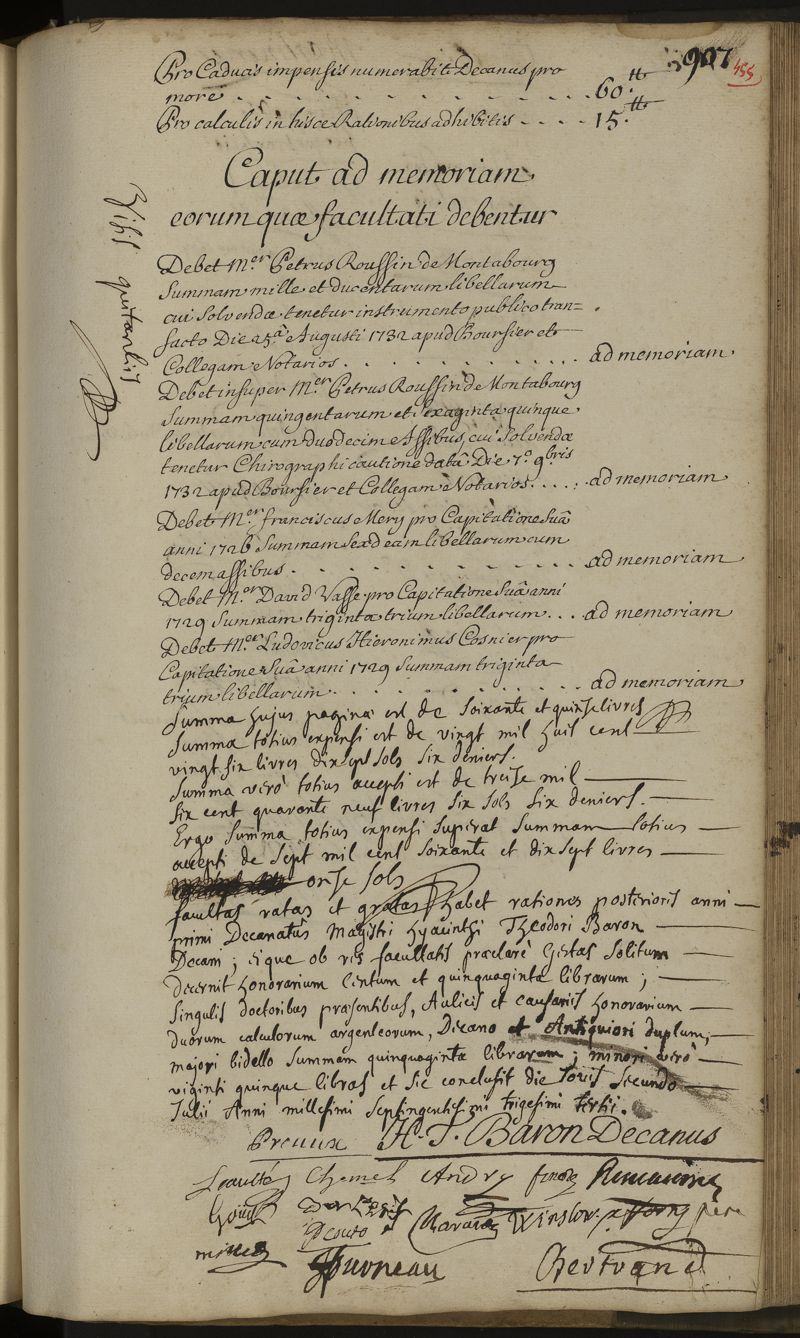 907
455
Pro Caducis impensis numerabit Decanus pro
more . . . . . . . . . . . 60.tt
Pro calculis in hisce Rationibus adhibitis - - - - 15.tt
Caput ad memoriam
eorum quæ facultati debentur
Debet M.er Petrus Roussin de Montabourg
Summam mille et ducentarum libellarum
cui Solvendæ tenetur instrumento publico tran-
sacto Die 25.a Augusti 1732 apud Boursier et
Collegam Notarios . . . . . . . . . . ad memoriam
Debet insuper M.er Petrus Roussin de Montabourg
Summam quingentarum et sexaginta quinque
libellarum cum duodecim Assibus, cui Solvendæ
tenetur Chirographi cautione datâ Die 7.o 9.bris
1732 apud Boursier et Collegam Notarios . . . . . ad memoriam
Debet M.er franciscus Mery pro Capitatione Suâ
anni 1726 Summam Sexdecim libellarum cum
decem assibus . . . . . . . . . . . ad memoriam
Debet M.er David Vasse pro Capitatione Suâ anni
1729 Summam triginta trium libellarum . . . ad memoriam
Debet M.er Ludovicus Hieronimus Cosnier pro
Capitatione Suâ anni 1729 Summam triginta
trium libellarum . . . . . . . . . . ad memoriam
Summa hujus paginæ est de Soixante et quinse livres
Summa totius expensi est de vingt mil huit cent
vingt six livres dix sept sols six deniers.
Summa verò totius accepti est de treise mil
six cent quarante neuf livres six sols six deniers.
Ergo Summa totius expensi superat Summam totius
accepti de Sept mil cent soixante et dix sept livres
onse sols
facultas ratas et gratas habet rationes posterioris anni
primi Decanatûs Magistri Hyacinthi Theodori Baron
Decani; eique ob res facultatis præclarè Gestas Solitum
decernit honorarium Centum et quinquaginta librarum;
Singulis doctoribus præsentibus, Aulicis et causariis honorarium
duorum calculorum argenteorum, Decano et Antiquiori duplum;
majori bidello Summam quinquaginta librarum; minori verò
viginti quinque libras et sic conclusit die Jovis Secundo
Julii Anni millesimi Septingentesimi trigesimi tertii.
H. T. Baron Decanus
Leaulté Chomel Andry
Winslow père
Bertrand